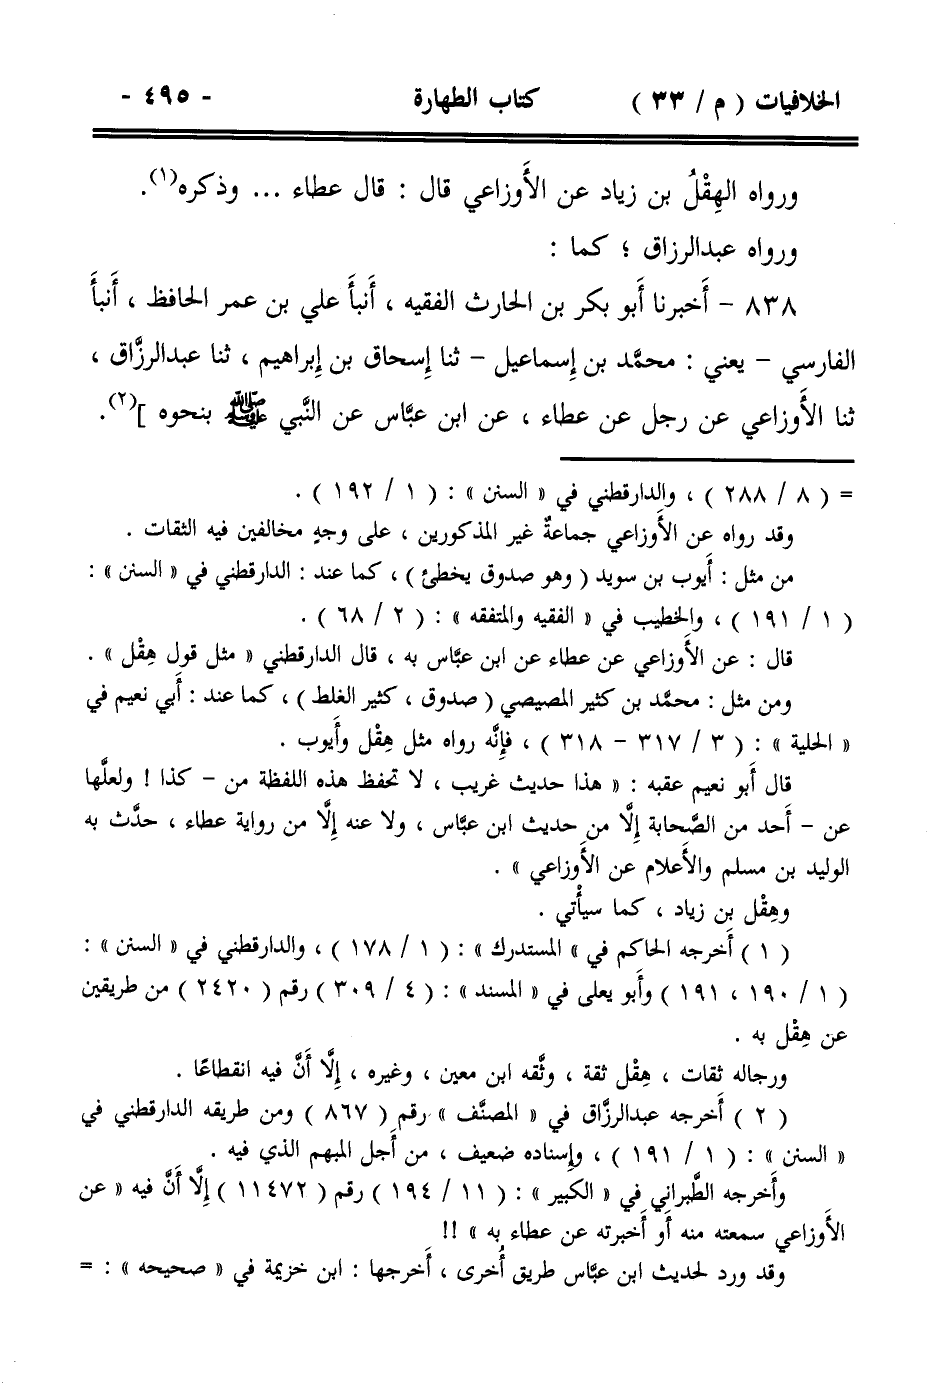 الخلافيات ( م / ٣٣ ) كتاب الطهارة - ٤٩٥ -
ورواه الهِقْلُ بن زياد عن الأَوزاعي قال : قال عطاء ... وذكره(١).
ورواه عبدالرزاق ؛ كما :
٨٣٨ - أَخبرنا أَبو بكر بن الحارث الفقيه ، أَنبأَ علي بن عمر الحافظ ، أَنبأَ
الفارسي - يعني : محمَّد بن إِسماعيل - ثنا إِسحاق بن إِبراهيم ، ثنا عبدالرزَّاق ،
ثنا الأَوزاعي عن رجل عن عطاء ، عن ابن عبَّاس عن النَّبي ﷺ بنحوه ](٢).
= ( ٨ / ٢٨٨ ) ، والدارقطني في « السنن » : ( ١ / ١٩٢ ) .
وقد رواه عن الأَوزاعي جماعةٌ غير المذكورين ، على وجهٍ مخالفين فيه الثقات .
من مثل : أَيوب بن سويد ( وهو صدوق يخطئ ) ، كما عند : الدارقطني في « السنن » :
( ١ / ١٩١ ) ، والخطيب في « الفقيه والمتفقه » : ( ٢ / ٦٨ ) .
قال : عن الأَوزاعي عن عطاء عن ابن عبَّاس به ، قال الدارقطني « مثل قول هِقْل » .
ومن مثل : محمَّد بن كثير المصيصي ( صدوق ، كثير الغلط ) ، كما عند : أَبي نعيم في
« الحلية » : ( ٣ / ٣١٧ - ٣١٨ ) ، فإِنَّه رواه مثل هِقْل وأَيوب .
قال أَبو نعيم عقبه : « هذا حديث غريب ، لا تحفظ هذه اللفظة من - كذا ! ولعلَّها
عن - أَحد من الصَّحابة إِلَّا من حديث ابن عبَّاس ، ولا عنه إِلَّا من رواية عطاء ، حدَّث به
الوليد بن مسلم والأَعلام عن الأَوزاعي » .
وهِقْل بن زياد ، كما سيأْتي .
( ١ ) أَخرجه الحاكم في « المستدرك » : ( ١ / ١٧٨ ) ، والدارقطني في « السنن » :
( ١ / ١٩٠ ، ١٩١ ) وأَبو يعلى في « المسند » : ( ٤ / ٣٠٩ ) رقم ( ٢٤٢٠ ) من طريقين
عن هِقْل به .
ورجاله ثقات ، هِقْل ثقة ، وثَّقه ابن معين ، وغيره ، إِلَّا أَنَّ فيه انقطاعًا .
( ٢ ) أَخرجه عبدالرزَّاق في « المصنَّف » رقم ( ٨٦٧ ) ومن طريقه الدارقطني في
« السنن » : ( ١ / ١٩١ ) ، وإِسناده ضعيف ، من أَجل المبهم الذي فيه .
وأَخرجه الطَّبراني في « الكبير » : ( ١١ / ١٩٤ ) رقم ( ١١٤٧٢ ) إِلَّا أَنَّ فيه « عن
الأَوزاعي سمعته منه أَو أَخبرته عن عطاء به » !!
وقد ورد لحديث ابن عبَّاس طريق أُخرى ، أَخرجها : ابن خزيمة في « صحيحه » : =